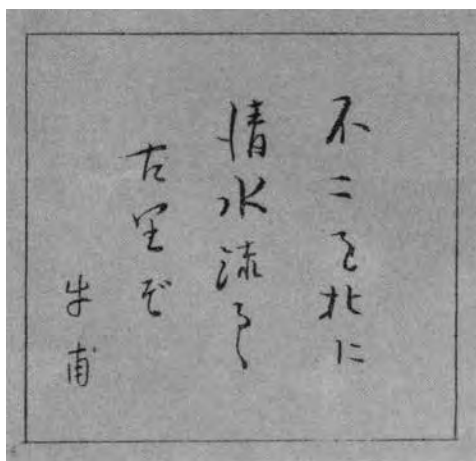 不二を北に
清水流るゝ
古里ぞ
牛甫